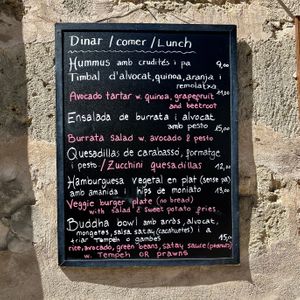 Dinar / comer / Lunch
Hummus amb crudités i pa 9,00
Timbal d'alvocat, quinoa, aranja i
remolatxa
Avocado tartar w. quinoa, grapefruit 11,00
and beetroot
Ensalada de burrata i alvocat
amb pesto 15,00
Burrata salad w. avocado & pesto
Quesadillas de carabassó, formatge
i pesto / Zucchini quesadillas 12,00
Hamburguesa vegetal en plat (sense pa)
amb amanida i xips de moniato 13,00
Veggie burger plate (no bread)
with salad & sweet potato fries
Buddha bowl amb arròs, alvocat,
mongetes, salsa satay (cacahuetes) i a
triar tempeh o gambes 15,00
rice, avocado, green beans, satay sauce (peanuts)
w. Tempeh OR prawns